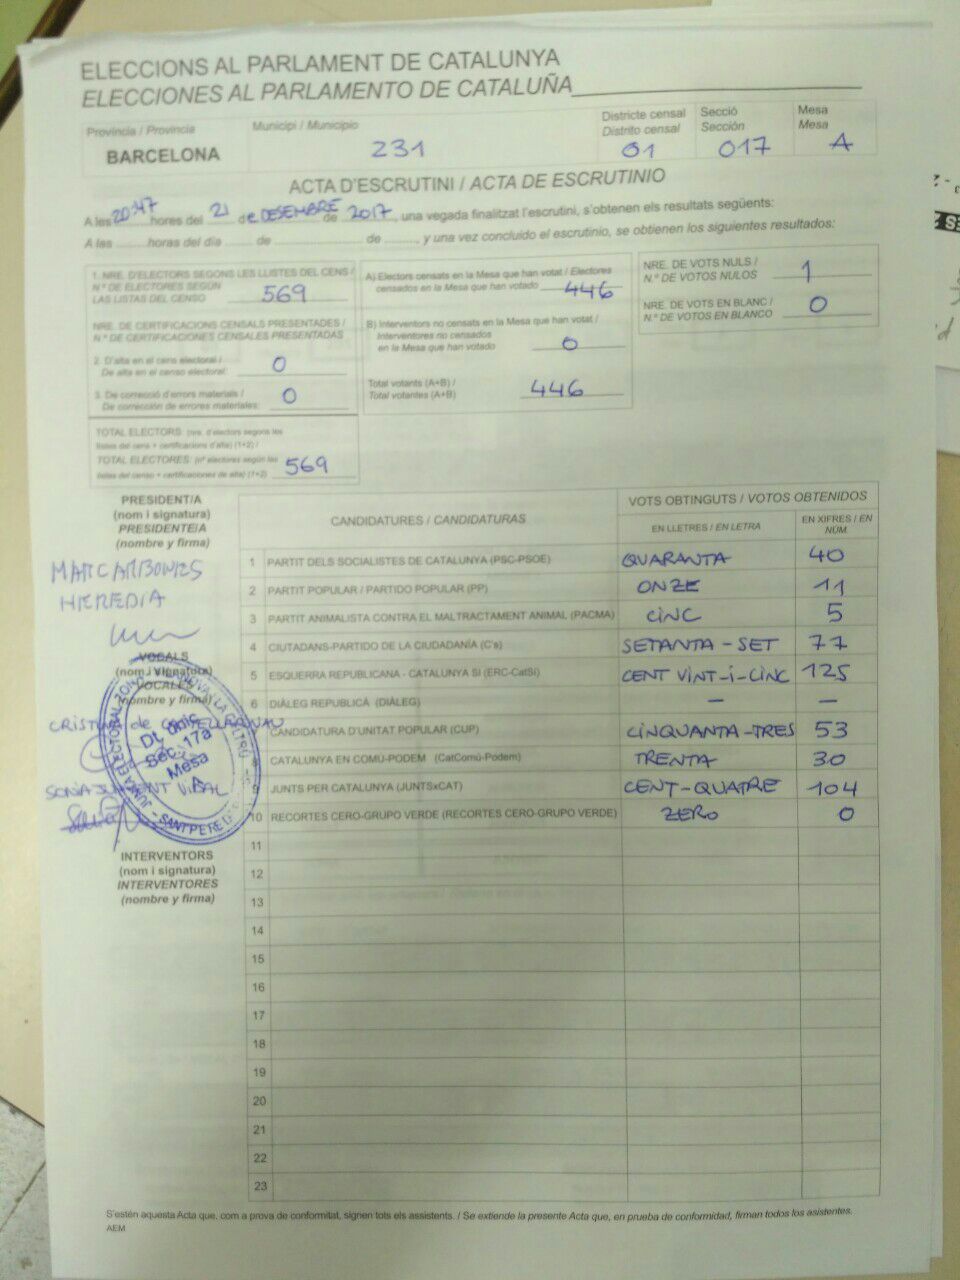 ELECCIONS AL PARLAMENT DE CATALUNYA
ELECCIONES AL PARLAMENTO DE CATALUÑA
Província / Provincia
BARCELONA
Municipi / Municipio
231
Districte censal
Distrito censal
01
Secció
Sección
017
Mesa
Mesa
A
ACTA D'ESCRUTINI / ACTA DE ESCRUTINIO
A les 20:47 hores del 21 de DESEMBRE de 2017, una vegada finalitzat l'escrutini, s'obtenen els resultats següents:
A las ......... horas del día ......... de ......... de ........., y una vez concluido el escrutinio, se obtienen los siguientes resultados:
1. NRE. D'ELECTORS SEGONS LES LLISTES DEL CENS /
N.º DE ELECTORES SEGÚN
LAS LISTAS DEL CENSO 569
NRE. DE CERTIFICACIONS CENSALS PRESENTADES /
N.º DE CERTIFICACIONES CENSALES PRESENTADAS
2. D'alta en el cens electoral /
De alta en el censo electoral: 0
3. De correcció d'errors materials /
De corrección de errores materiales: 0
TOTAL ELECTORS: (nre. d'electors segons les
llistes del cens + certificacions d'alta) (1+2) /
TOTAL ELECTORES: (nº electores según las
listas del censo + certificaciones de alta) (1+2) 569
A) Electors censats en la Mesa que han votat / Electores
censados en la Mesa que han votado 446
B) Interventors no censats en la Mesa que han votat /
Interventores no censados
en la Mesa que han votado 0
Total votants (A+B) /
Total votantes (A+B) 446
NRE. DE VOTS NULS /
N.º DE VOTOS NULOS 1
NRE. DE VOTS EN BLANC /
N.º DE VOTOS EN BLANCO 0
PRESIDENT/A
(nom i signatura)
PRESIDENTE/A
(nombre y firma)
HEREDIA
VOCALS
(nom i signatura)
VOCALES
(nombre y firma)
VIDAL
Dt. únic
Sec. 17a
Mesa
A
INTERVENTORS
(nom i signatura)
INTERVENTORES
(nombre y firma)
CANDIDATURES / CANDIDATURAS
VOTS OBTINGUTS / VOTOS OBTENIDOS
EN LLETRES / EN LETRA
EN XIFRES / EN NÚM.
1 PARTIT DELS SOCIALISTES DE CATALUNYA (PSC-PSOE) QUARANTA 40
2 PARTIT POPULAR / PARTIDO POPULAR (PP) ONZE 11
3 PARTIT ANIMALISTA CONTRA EL MALTRACTAMENT ANIMAL (PACMA) CINC 5
4 CIUTADANS-PARTIDO DE LA CIUDADANÍA (C's) SETANTA-SET 77
5 ESQUERRA REPUBLICANA - CATALUNYA SÍ (ERC-CatSí) CENT VINT-I-CINC 125
6 DIÀLEG REPUBLICÀ (DIÀLEG) — —
CANDIDATURA D'UNITAT POPULAR (CUP) CINQUANTA-TRES 53
8 CATALUNYA EN COMÚ-PODEM (CatComú-Podem) TRENTA 30
9 JUNTS PER CATALUNYA (JUNTSxCAT) CENT-QUATRE 104
10 RECORTES CERO-GRUPO VERDE (RECORTES CERO-GRUPO VERDE) ZERO 0
11
12
13
14
15
16
17
18
19
20
21
22
23
S'estén aquesta Acta que, com a prova de conformitat, signen tots els assistents. / Se extiende la presente Acta que, en prueba de conformidad, firman todos los asistentes.
AEM